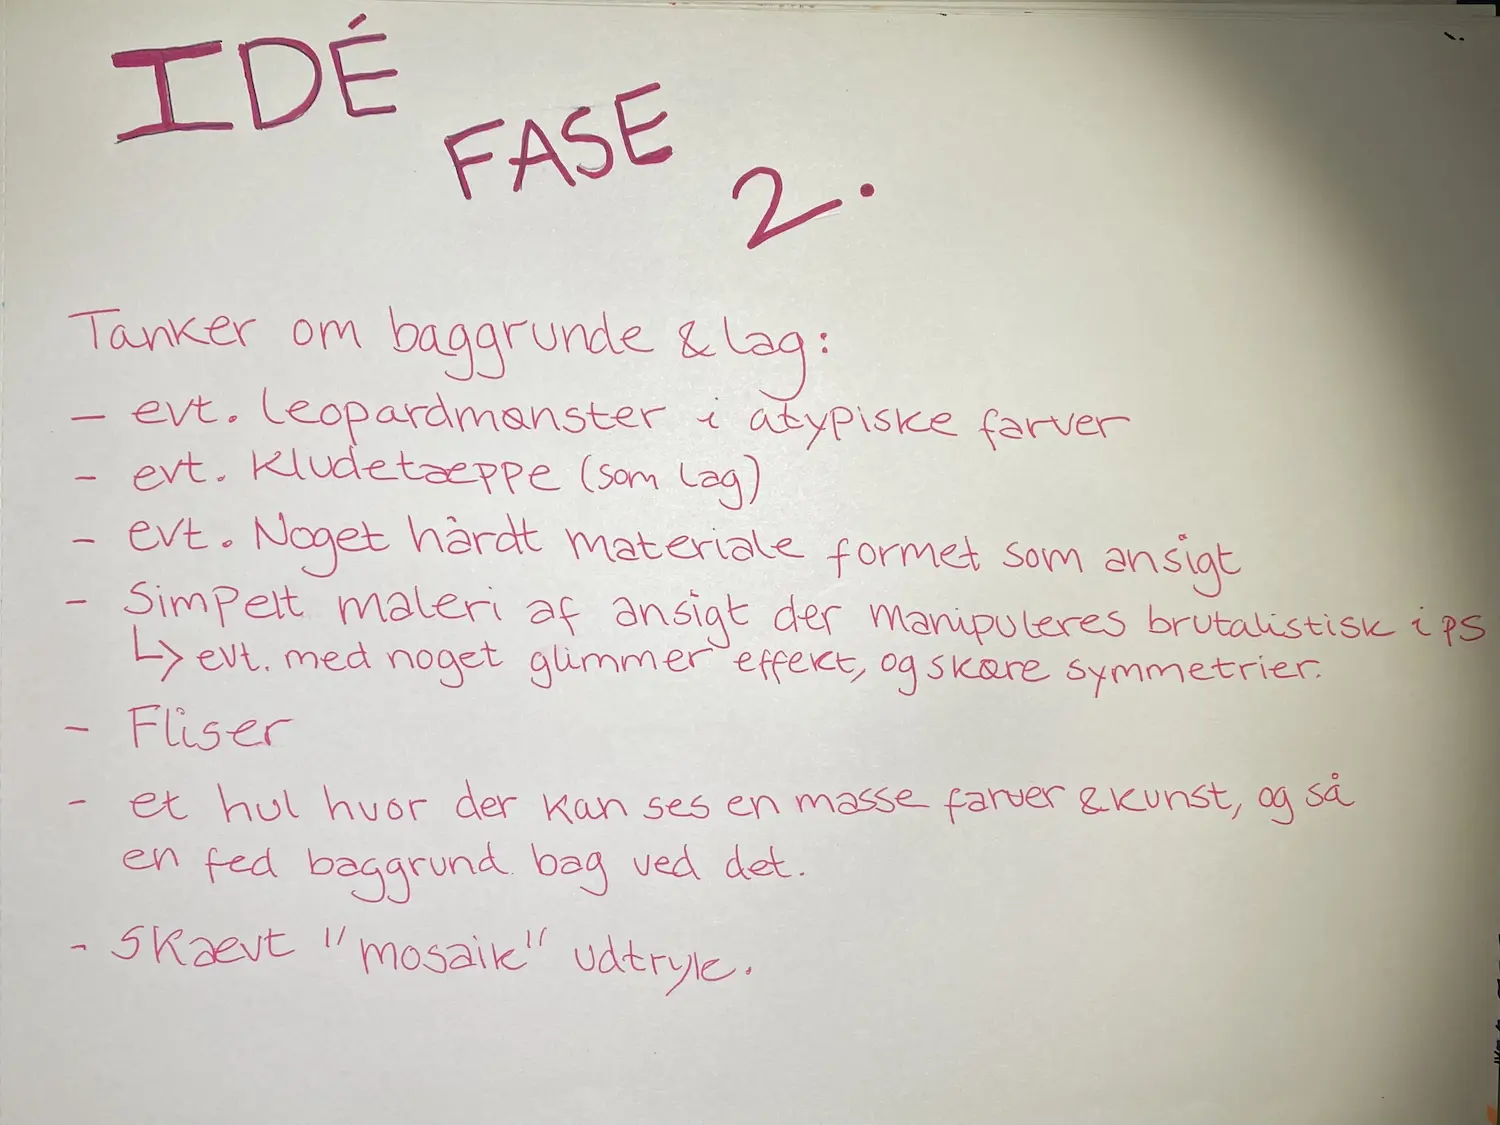 IDÉ
FASE
2.
Tanker om baggrunde & lag:
- evt. leopardmønster i atypiske farver
- evt. Kludetæppe (som lag)
- evt. Noget hårdt materiale formet som ansigt
- Simpelt maleri af ansigt der manipuleres brutalistisk i ps
↳ evt. med noget glimmer effekt, og skøre symmetrier.
- Fliser
- et hul hvor der kan ses en masse farver & kunst, og så
en fed baggrund bag ved det.
- Skævt "mosaik" udtryk.